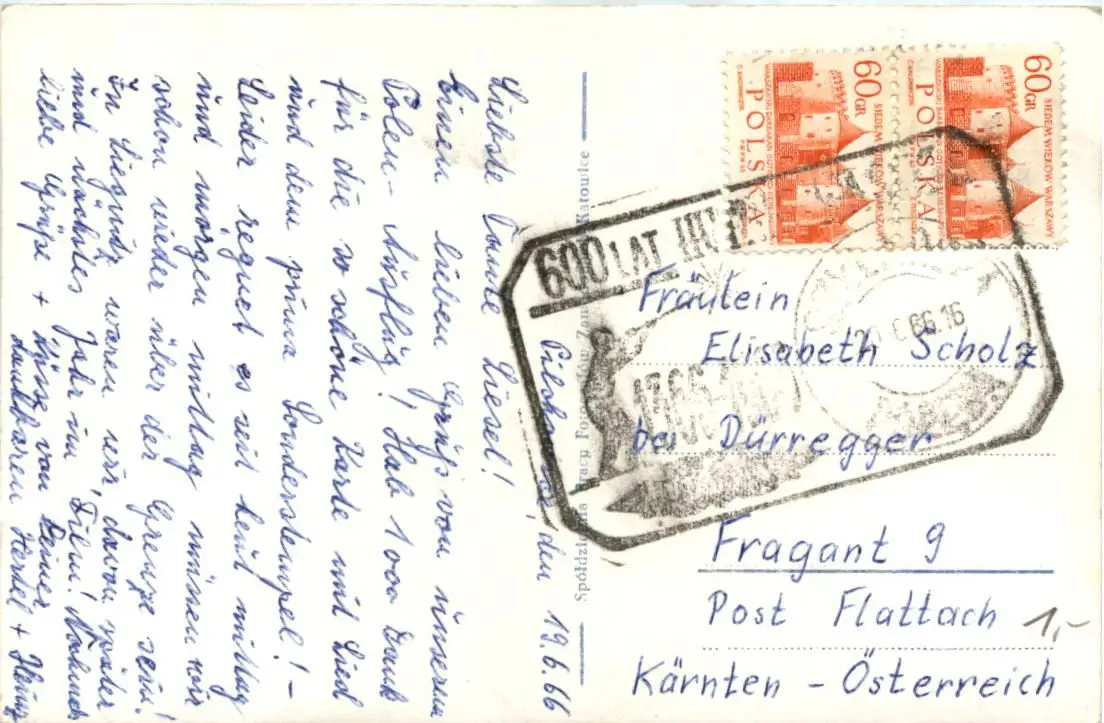 Pilchowice, den 19.6.66
Liebste Tante Liesel!
Einen lieben Gruß von unserm
Polen-Ausflug! Hab 1000 Dank
für die so schöne Karte mit Lied
und dem prima Sonderstempel! -
Leider regnet es seit heut mittag
und morgen mittag müssen wir
schon wieder über der Grenze sein!
In Liegnitz waren wir, davon später
und nächstes Jahr im Film! Nochmals
liebe Grüße + Küsse von Deiner
dankbaren Herdel + Heinz
Spółdzielnia Pracy Katowice
60 GR
SIEDEM WIEKÓW WARSZAWY
POLSKA
60 GR
SIEDEM WIEKÓW WARSZAWY
POLSKA
600 LAT
66.16
Fräulein
Elisabeth Scholz
bei Dürregger
Fragant 9
Post Flattach
Kärnten - Österreich
1,-